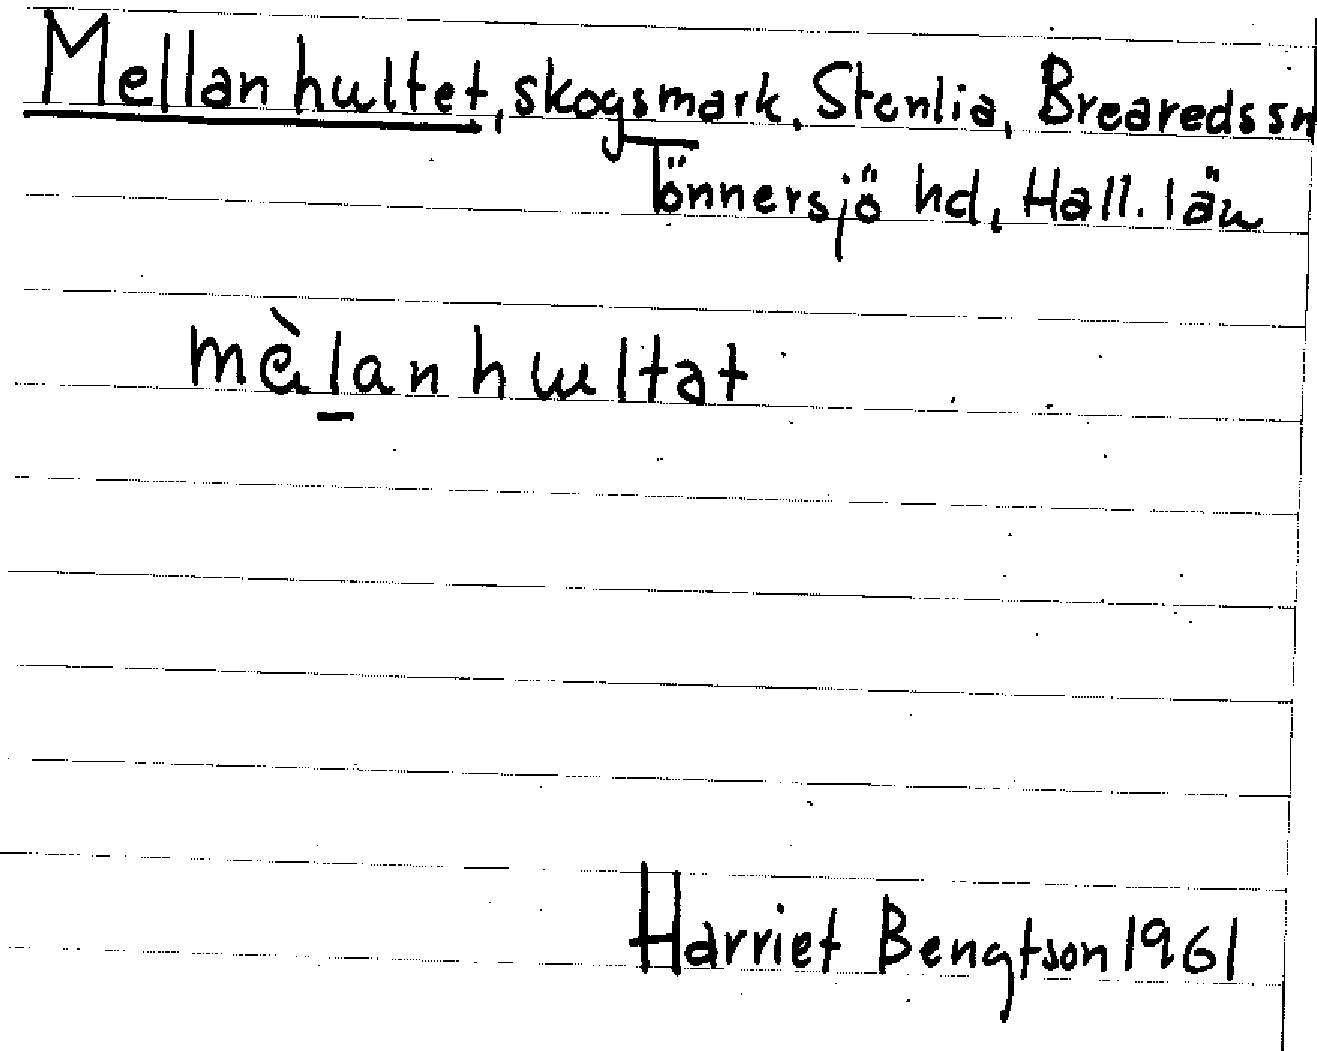 Mellanhultet, skogsmark. Stenlia, Breareds sn
Tönnersjö hd, Hall. län
mèlanhɯltat
Harriet Bengtson 1961